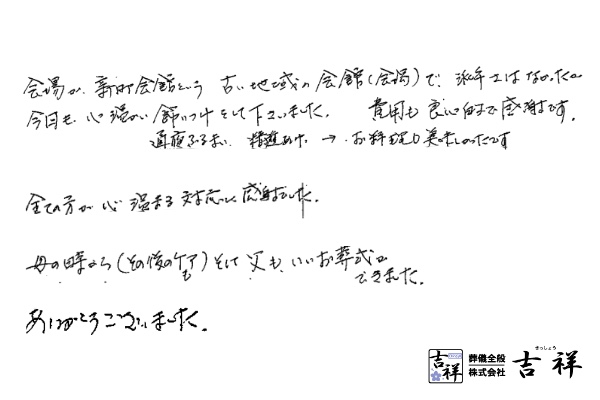 会場が、新町会館という 古い地域の会館(会場)で、派手さはなかったが
今回も、心温かい飾りつけをして下さいました。 費用も良心的で感謝です。
通夜ふるまい、精進あげ、→ お料理も美味しかったです
全ての方が心温まる対応に感謝でした。
母の時から(その後のケアも)そして父も、いいお葬式が
できました。
ありがとうございました。
吉祥
葬儀全般
株式会社
きっしょう
吉祥